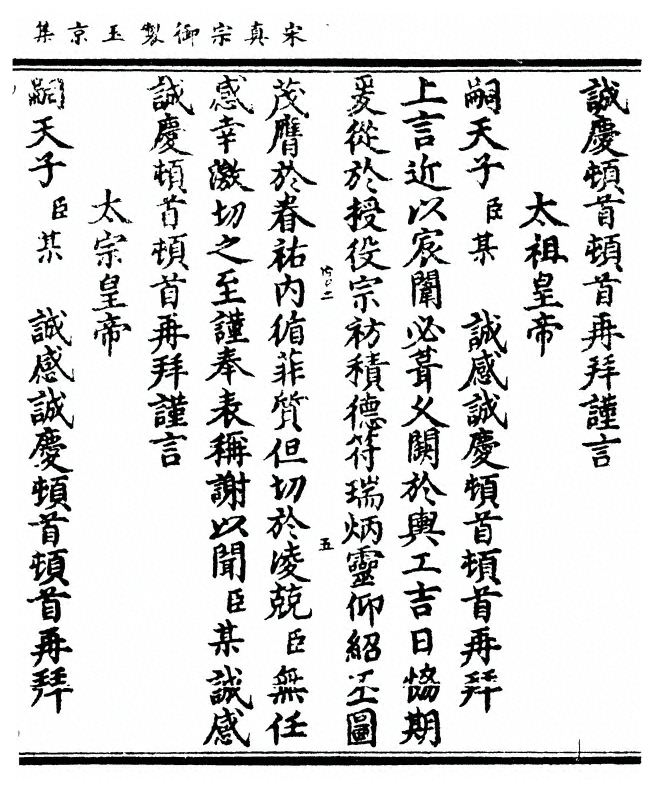 宋真宗御製玉京集
誠慶頓首頓首再拜謹言
太祖皇帝
嗣天子臣某 誠感誠慶頓首頓首再拜
上言近以宸闈必葺久闕於輿工吉日恊期
爰從於授役宗祊積德符瑞炳靈仰紹丕圖
二 五
茂膺於眷祐内循菲質但切於凌兢臣無任
感幸激切之至謹奉表稱謝以聞臣某誠感
誠慶頓首頓首再拜謹言
太宗皇帝
嗣天子臣某 誠感誠慶頓首頓首再拜